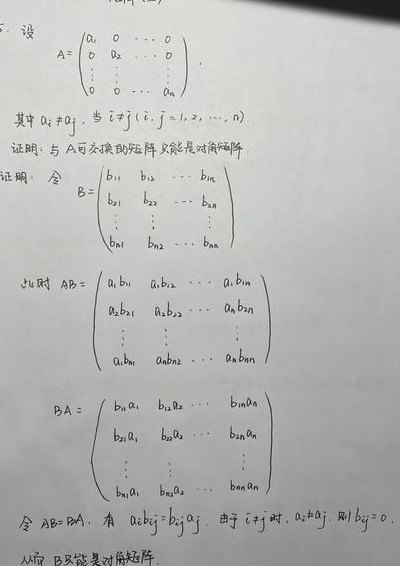 设
A= ( a₁ 0 ⋯ 0
0 a₂ ⋯ 0
⋮ ⋮ ⋮
0 0 ⋯ aₙ ) .
其中 aᵢ≠aⱼ, 当 i≠j (i, j = 1, 2, ⋯, n).
证明: 与 A 可交换的矩阵只能是对角矩阵.
证明: 令
B= ( b₁₁ b₁₂ ⋯ b₁ₙ
b₂₁ b₂₂ ⋯ b₂ₙ
⋮ ⋮ ⋮
bₙ₁ bₙ₂ ⋯ bₙₙ )
此时 AB= ( a₁b₁₁ a₁b₁₂ ⋯ a₁b₁ₙ
a₂b₂₁ a₂b₂₂ ⋯ aₙb₂ₙ
⋮ ⋮ ⋮
a₁bₙ₁ aₙbₙ₂ ⋯ aₙbₙₙ )
BA= ( b₁₁a₁ b₁₂a₂ ⋯ b₁ₙaₙ
b₂₁a₁ b₂₂a₂ ⋯ b₂ₙaₙ
⋮ ⋮ ⋮
bₙ₁a₁ bₙ₂a₂ ⋯ bₙₙaₙ )
令 AB=BA, 有 aᵢbᵢⱼ=bᵢⱼaⱼ. 由于 i≠j 时, aᵢ≠aⱼ, 则 bᵢⱼ=0.
从而 B只能是对角矩阵.